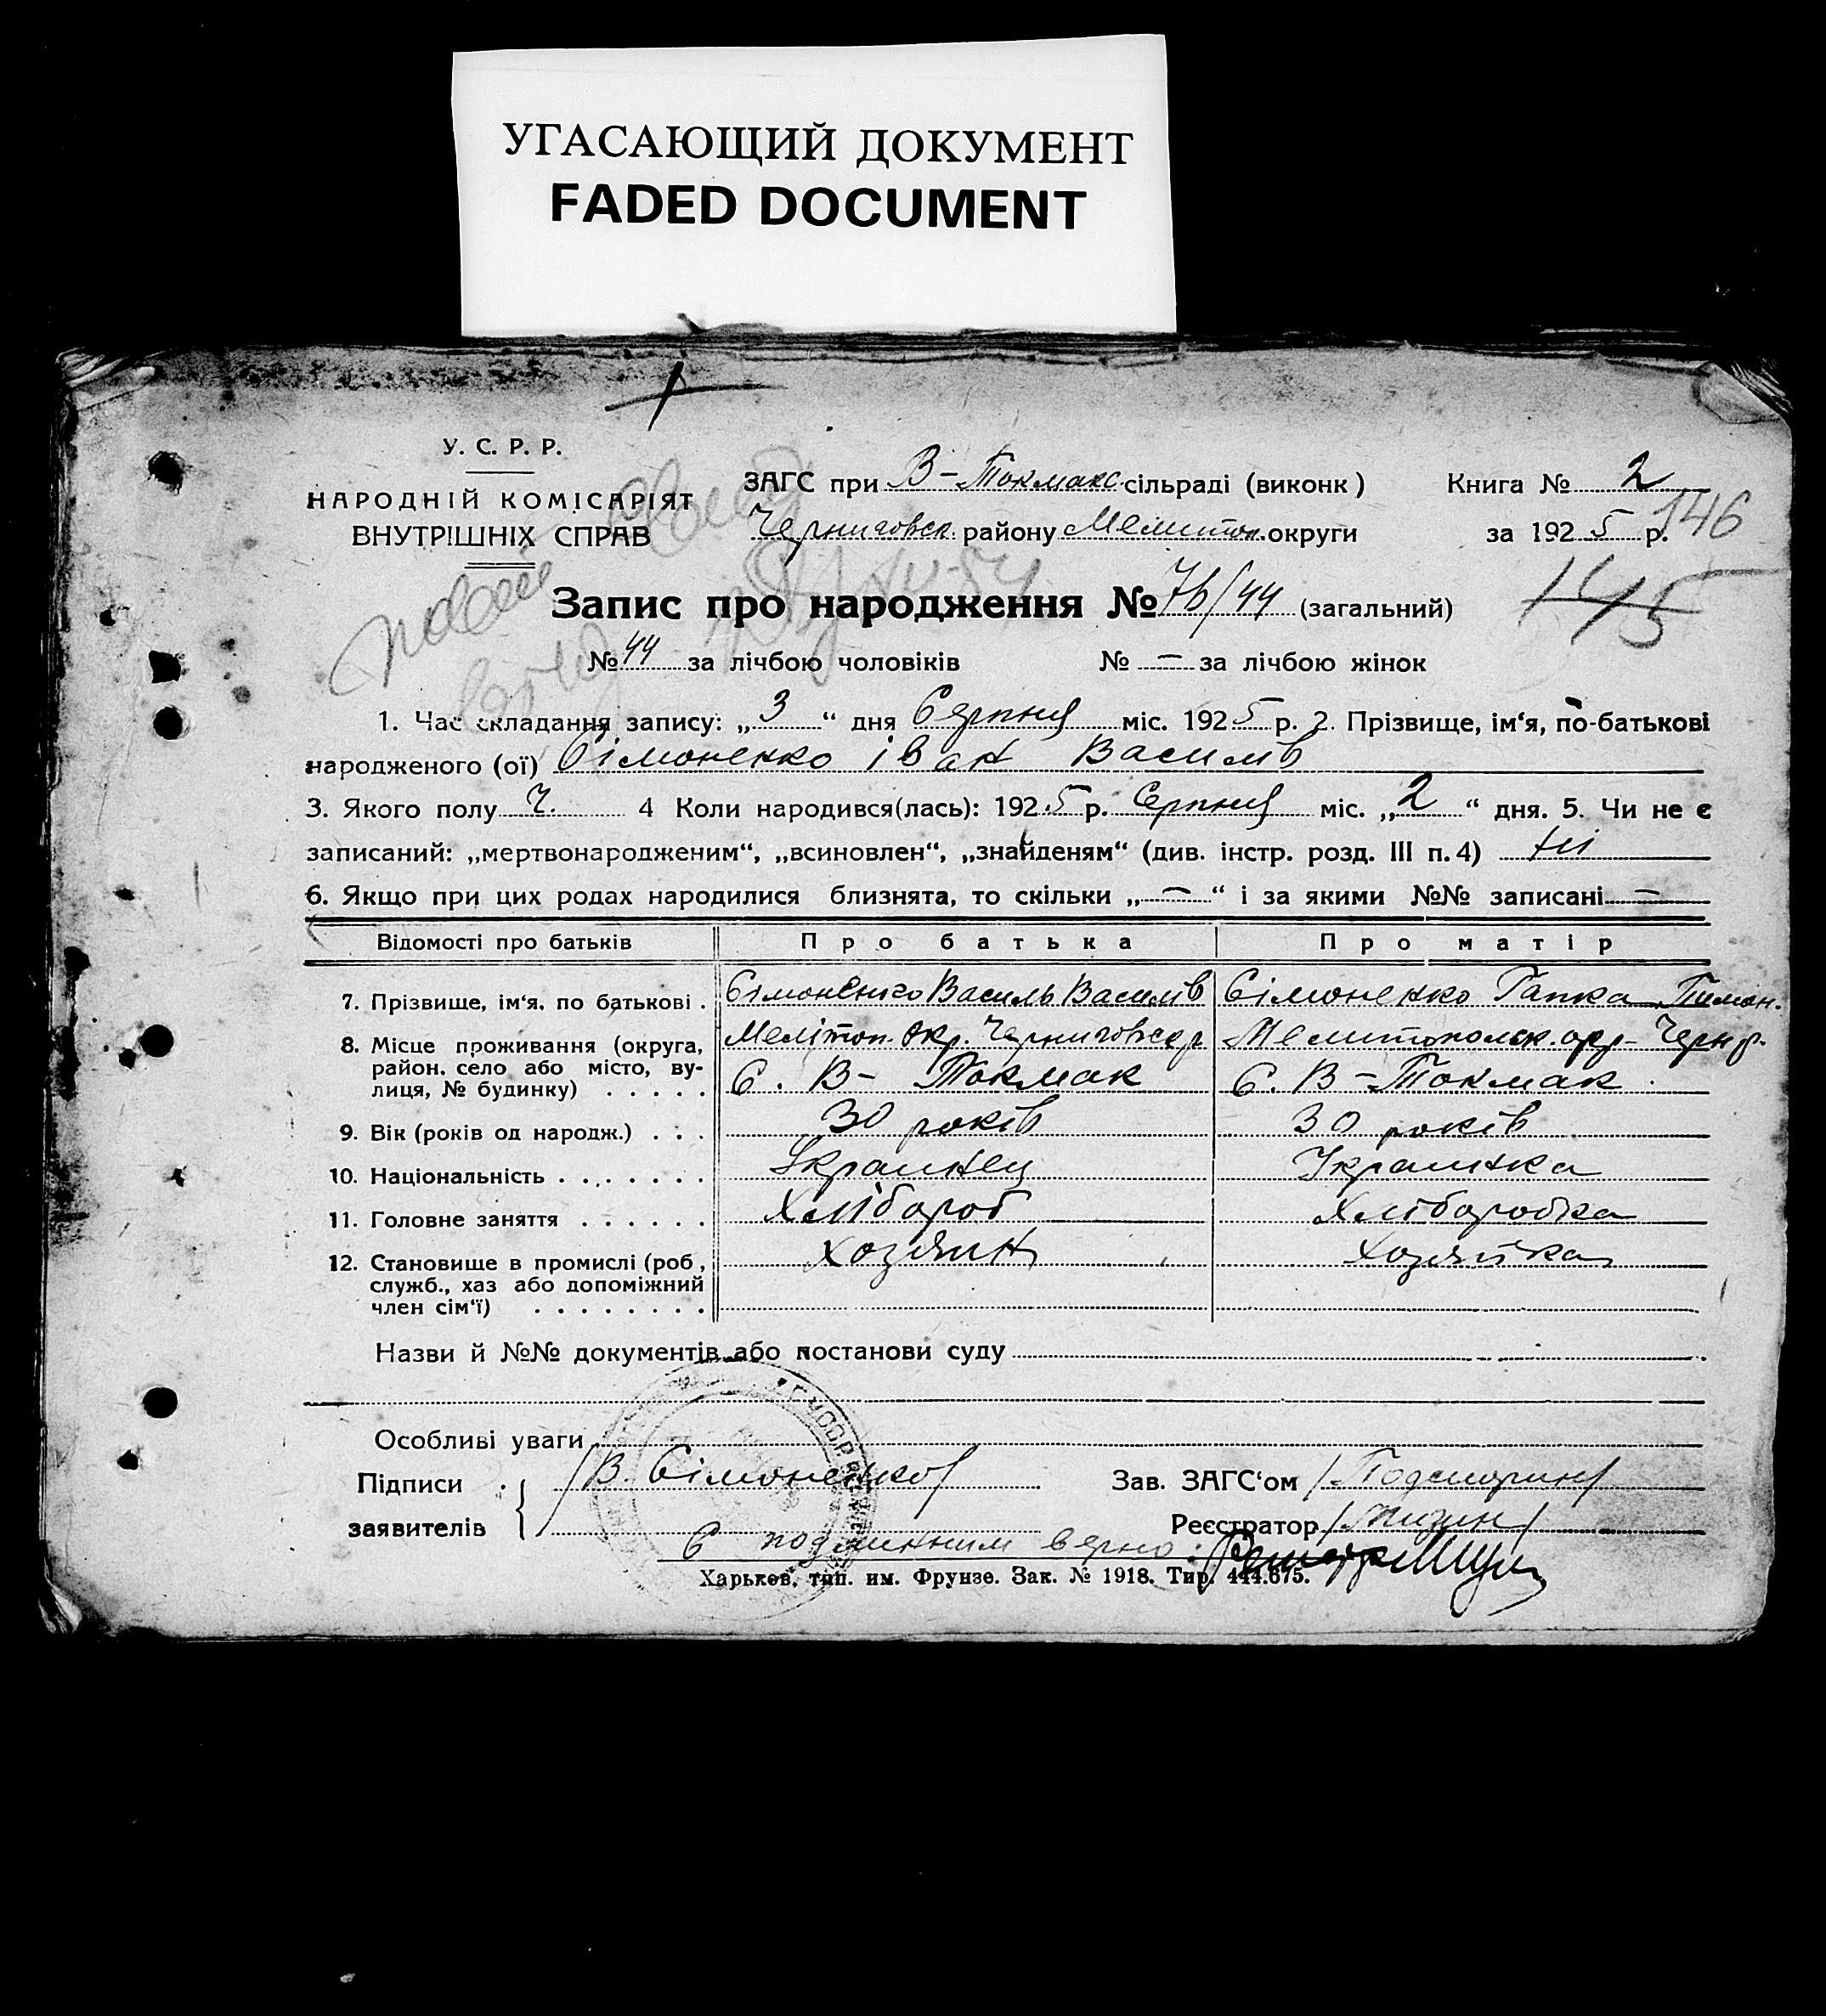 УГАСАЮЩИЙ ДОКУМЕНТ
FADED DOCUMENT
У. С. Р. Р.
НАРОДНІЙ КОМІСАРІЯТ
ВНУТРІШНІХ СПРАВ
ЗАГС при В-Токмакс. сільраді (виконк)
Книга № 2
Черниговск. району Мелитоп. округи
за 1925 р.
146
Запис про народження № 76/44 (загальний)
145
№ 44 за лічбою чоловіків № — за лічбою жінок
1. Час складання запису: „3“ дня Серпня міс. 1925 р. 2. Прізвище, ім‘я, по-батькові
народженого (ої) Сімоненко Іван Василів
3. Якого полу Ч. 4 Коли народився(лась): 1925 р. Серпня міс. „2“ дня. 5. Чи не є
записаний: „мертвонародженим“, „всиновлен“, „знайденям“ (див. інстр. розд. III п. 4) ні
6. Якщо при цих родах народилися близнята, то скільки „—“ і за якими №№ записані —
Відомості про батьків Про батька Про матір
7. Прізвище, ім‘я, по батькові . Сімоненко Василь Василів Сімоненко Гапка Тимон.
8. Місце проживання (округа, район, село або місто, вулиця, № будинку) . . . . .
Мелітоп. окр. Черниговск р Мелитопольск. окр- Черн р.
С. В- Токмак С. В-Токмак.
9. Вік (років од народж.) . . . 30 років 30 років
10. Національність . . . . . . . Украинец Украинка
11. Головне заняття . . . . . . Хлібороб Хліборобка
12. Становище в промислі (роб., служб., хаз або допоміжний член сім‘ї) . . . . . . . . Хозяин Хозяйка
Назви й №№ документів або постанови суду
Особливі уваги
Підписи
заявителів
/В. Сімоненко/
Зав. ЗАГС‘ом
Реєстратор
С подлинним верно:
Харьков, тип. им. Фрунзе. Зак. № 1918. Тир. 444.675.